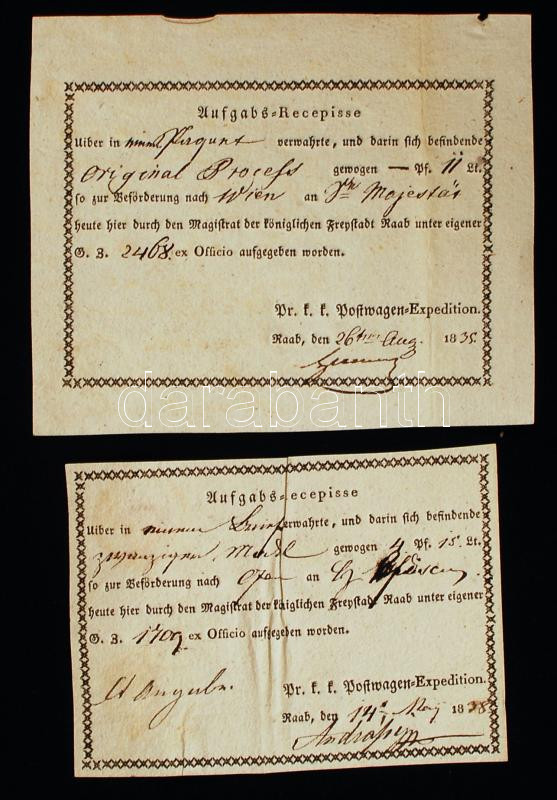 Aufgabs=Recepisse
Uiber in einem Paquet verwahrte, und darin sich befindende
Original Process gewogen — Pf. 11 Lt.
so zur Beförderung nach Wien an Majestät
heute hier durch den Magistrat der königlichen Freystadt Raab unter eigener
G. Z. 2468 ex Officio aufgegeben worden.
Pr. k. k. Postwagen=Expedition.
Raab, den 26ten Aug. 1835
darabanth
Aufgabs=Recepisse
Uiber in einem verwahrte, und darin sich befindende
gewogen 4 Pf. 15 Lt.
so zur Beförderung nach Ofen an
heute hier durch den Magistrat der königlichen Freystadt Raab unter eigener
G. Z. 1709 ex Officio aufgegeben worden.
Pr. k. k. Postwagen=Expedition.
Raab, den 14 May 1838